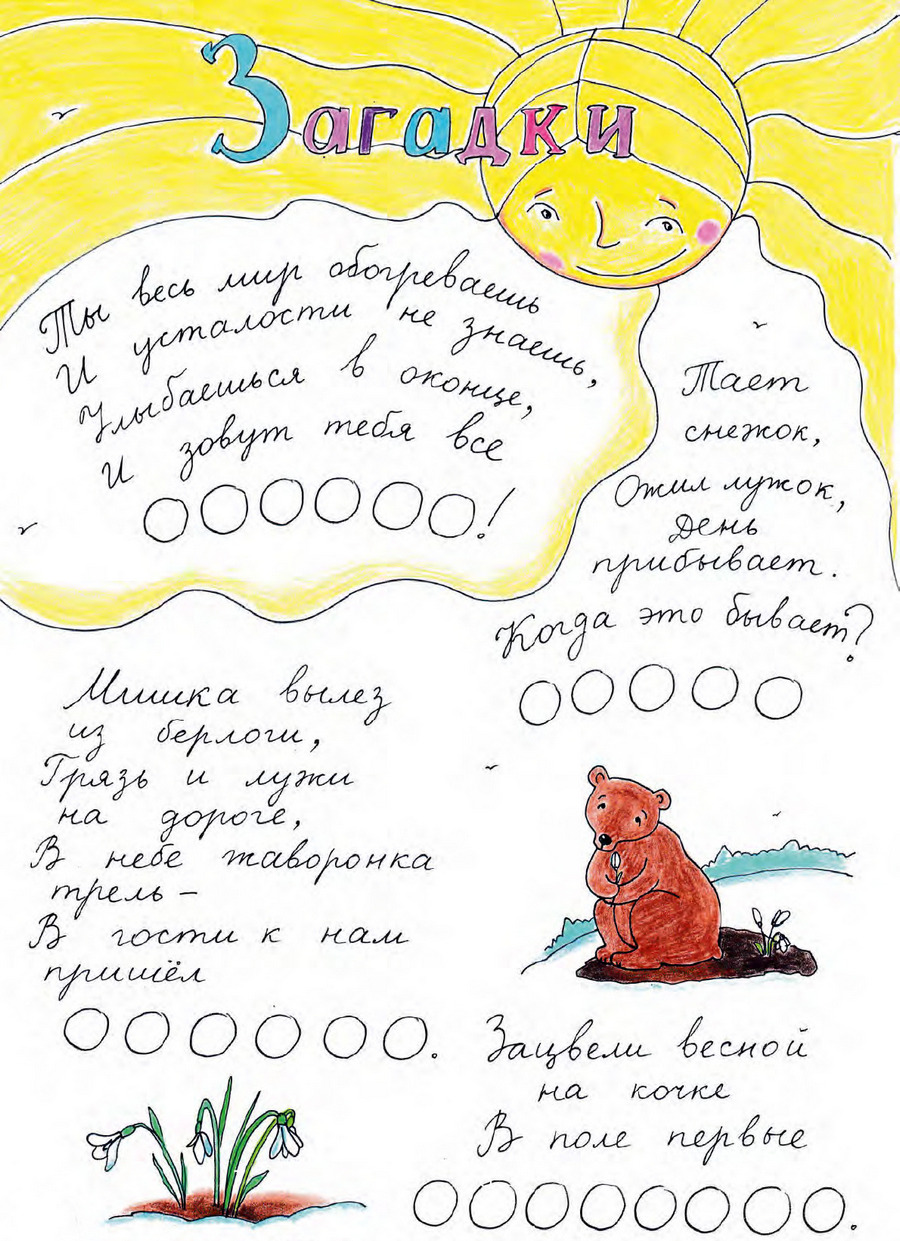 Загадки
Ты весь мир обогреваешь
И усталости не знаешь,
Улыбаешься в оконце,
И зовут тебя все
!
Тает
снежок,
Ожил лужок,
День
прибывает.
Когда это бывает?
Мишка вылез
из берлоги,
Грязь и лужи
на дороге,
В небе жаворонка
трель –
В гости к нам
пришёл
.
Зацвели весной
на кочке
В поле первые
.